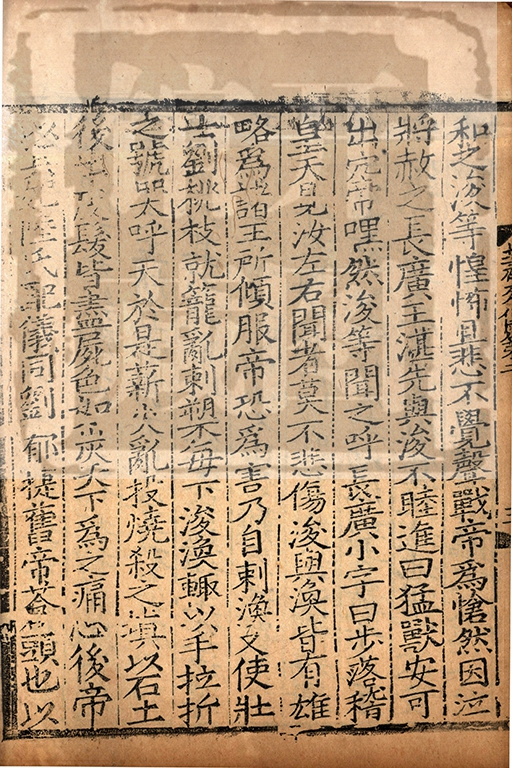 和之浚等惶怖且悲不覺聲戰帝爲愴然因泣
將赦之長廣王湛先與浚不睦進曰猛獸安可
出穴帝嘿然浚等聞之呼長廣小字曰步落稽
皇天見汝左右聞者莫不悲傷浚與渙皆有雄
略爲諸王所傾服帝恐爲害乃自刺渙又使壯
士劉桃枝就籠亂刺槊每下浚渙輙以手拉折
之號哭呼天於是薪火亂投燒殺之填以石土
後出皮髮皆盡屍色如炭天下爲之痛心後帝
以其妃陸氏配儀同劉郁捷舊帝蒼頭也以